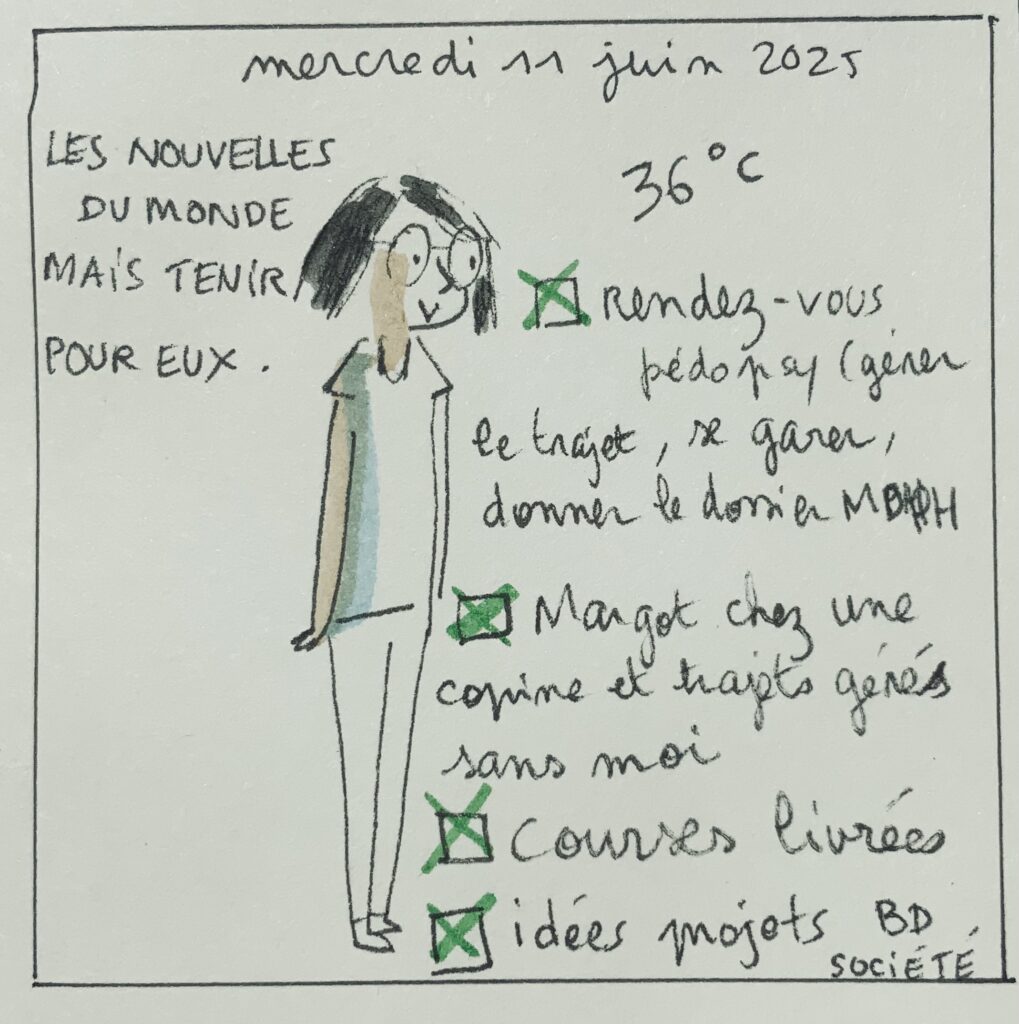 mercredi 11 juin 2025
LES NOUVELLES
DU MONDE
MAIS TENIR
POUR EUX.
36°C
rendez-vous
pédopsy (gérer
le trajet, se garer,
donner le dossier MDPH
Margot chez une
copine et trajets gérés
sans moi
courses livrées
idées projets BD
SOCIÉTÉ